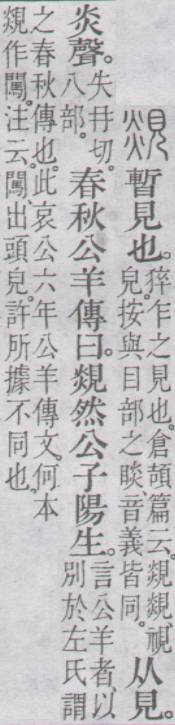 覢暫見也。猝乍之見也。倉頡篇云。覢覢、視皃。按與目部之睒、音義皆同。从見。
炎聲。失冄切。八部。春秋公羊傳曰。覢然公子陽生。言公羊者、以別於左氏謂
之春秋傳也。此哀公六年公羊傳文。何本
覢作闖。注云。闖、出頭皃。許所據不同也。